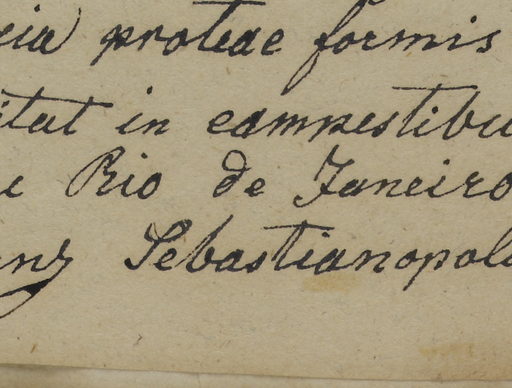 cia proteae formis
itat in campestibu
Rio de Janeiro
Sebastianopol